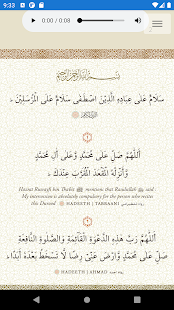 9:33
0:00 / 0:08
سَلَامٌ عَلَى عِبَادِهِ الَّذِيْنَ اصْطَفَى سَلَامٌ عَلَى الْمُرْسَلِيْنَ
١
اَللّٰهُمَّ صَلِّ عَلَى مُحَمَّدٍ وَّعَلَى اٰلِ مُحَمَّدٍ
وَّأَنْزِلْهُ الْمَقْعَدَ الْمُقَرَّبَ عِنْدَكَ
Hazrat Ruwayfi bin Thabit mentions that Rasulullah said,
My intercession is absolutely compulsory for the person who recites
this Durood HADEETH | TABRAANI
٢
اَللّٰهُمَّ رَبَّ هٰذِهِ الدَّعْوَةِ الْقَائِمَةِ وَالصَّلٰوةِ النَّافِعَةِ
صَلِّ عَلَى مُحَمَّدٍ وَّارْضَ عَنِّيْ رِضًا لَّا تَسْخَطُ بَعْدَهُ أَبَدًا
HADEETH | AHMAD